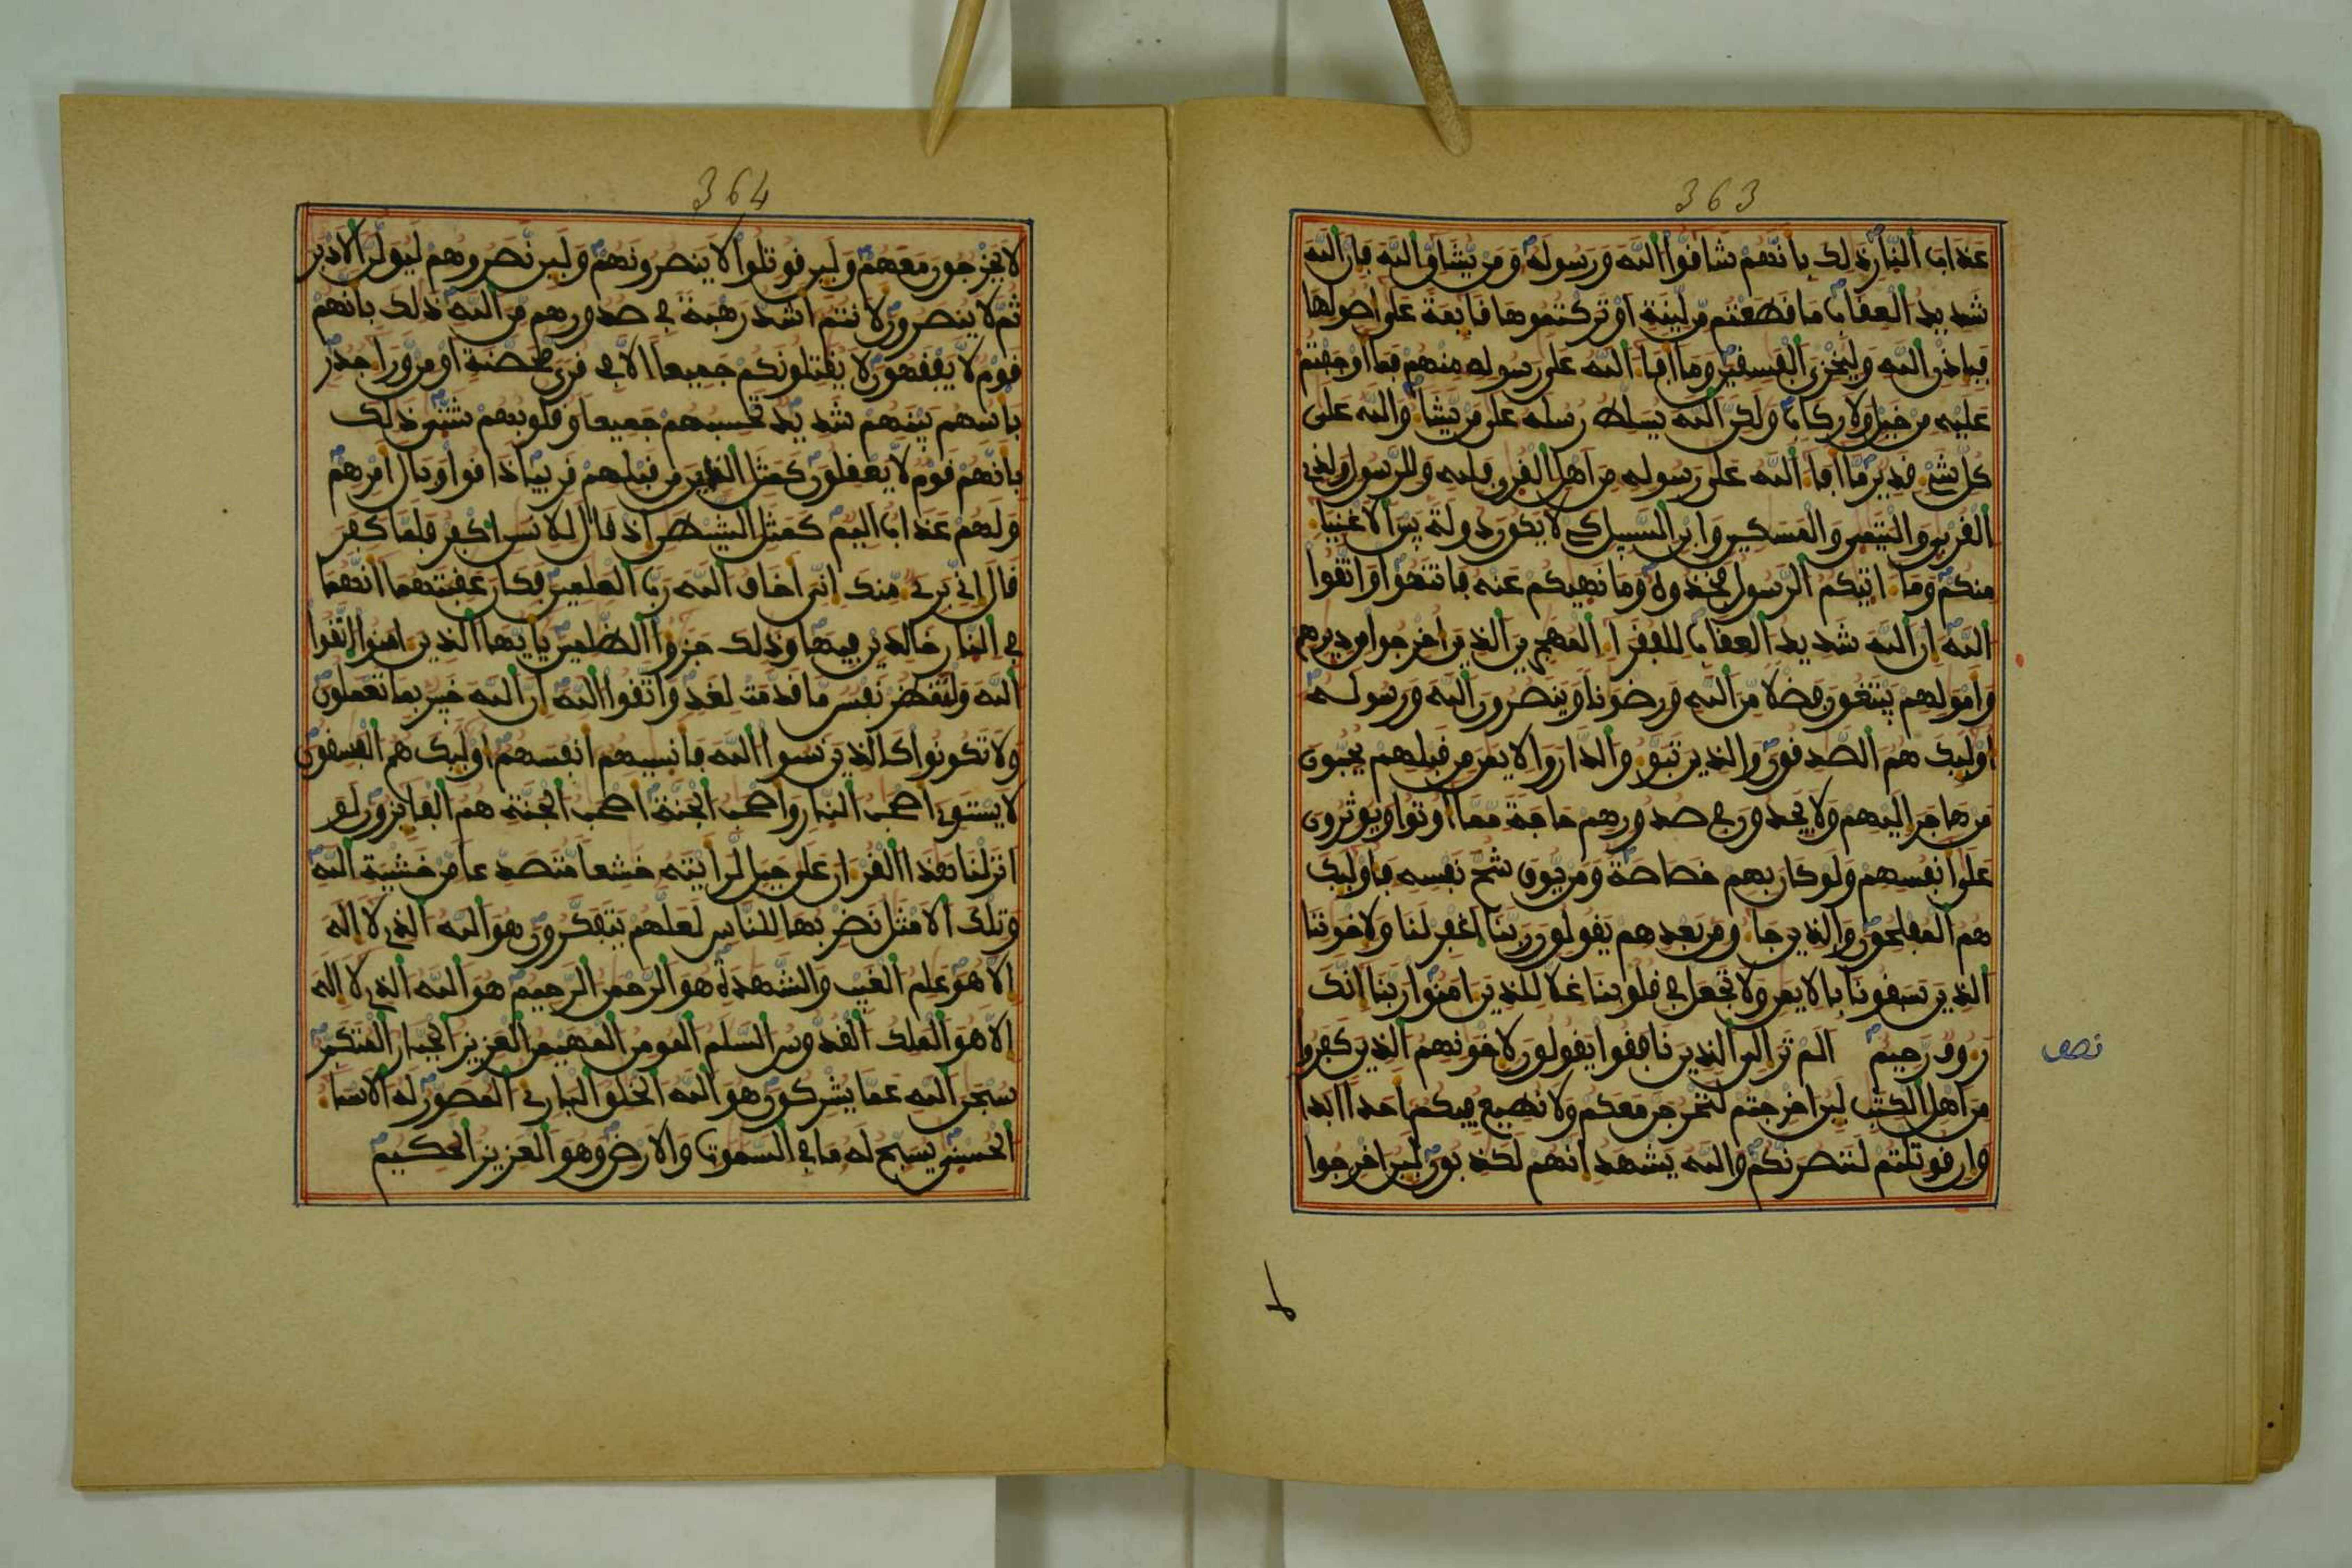 363
عذاب النار ذلك بانهم شاقوا الله ورسوله ومن يشاق الله فان الله
شديد العقاب ما قطعتم من لينة او تركتموها قايمة على اصولها
فباذن الله وليخزي الفسقين وما افاء الله على رسوله منهم فما اوجفتم
عليه من خيل ولا ركاب ولكن الله يسلط رسله على من يشاء والله على
كل شيء قدير ما افاء الله على رسوله من اهل القرى فلله وللرسول ولذي
القربى واليتمى والمسكين وابن السبيل كي لا يكون دولة بين الاغنياء
منكم وما اتيكم الرسول فخذوه وما نهيكم عنه فانتهوا واتقوا
الله ان الله شديد العقاب للفقراء المهجرين الذين اخرجوا من ديرهم
وامولهم يبتغون فضلا من الله ورضونا وينصرون الله ورسوله
اوليك هم الصدقون والذين تبوو الدار والايمن من قبلهم يحبون
من هاجر اليهم ولا يجدون في صدورهم حاجة مما اوتوا ويوثرون
على انفسهم ولو كان بهم خصاصة ومن يوق شح نفسه فاوليك
هم المفلحون والذين جاءو من بعدهم يقولون ربنا اغفر لنا ولاخوننا
الذين سبقونا بالايمن ولا تجعل في قلوبنا غلا للذين امنوا ربنا انك
رءوف رحيم الم تر الى الذين نافقوا يقولون لاخونهم الذين كفروا
نصف
من اهل الكتب لين اخرجتم لنخرجن معكم ولا نطيع فيكم احدا ابدا
وان قوتلتم لننصرنكم والله يشهد انهم لكذبون لين اخرجوا
لا
364
لا يخرجون معهم ولين قوتلوا لا ينصرونهم ولين نصروهم ليولن الادبر
ثم لا ينصرون لانتم اشد رهبة في صدورهم من الله ذلك بانهم
قوم لا يفقهون لا يقتلونكم جميعا الا في قرى محصنة او من وراء جدر
باسهم بينهم شديد تحسبهم جميعا وقلوبهم شتى ذلك
بانهم قوم لا يعقلون كمثل الذين من قبلهم قريبا ذاقوا وبال امرهم
ولهم عذاب اليم كمثل الشيطن اذ قال للانسن اكفر فلما كفر
قال اني بريء منك اني اخاف الله رب العلمين فكان عقبتهما انهما
في النار خالدين فيها وذلك جزؤا الظلمين يايها الذين امنوا اتقوا
الله ولتنظر نفس ما قدمت لغد واتقوا الله ان الله خبير بما تعملون
ولا تكونوا كالذين نسوا الله فانسيهم انفسهم اوليك هم الفسقون
لا يستوي اصحب النار واصحب الجنة اصحب الجنة هم الفايزون لو
انزلنا هذا القرءان على جبل لرايته خشعا متصدعا من خشية الله
وتلك الامثل نضربها للناس لعلهم يتفكرون هو الله الذي لا اله
الا هو علم الغيب والشهدة هو الرحمن الرحيم هو الله الذي لا اله
الا هو الملك القدوس السلم المومن المهيمن العزيز الجبار المتكبر
سبحن الله عما يشركون هو الله الخلق الباري المصور له الاسماء
الحسنى يسبح له ما في السموت والارض وهو العزيز الحكيم